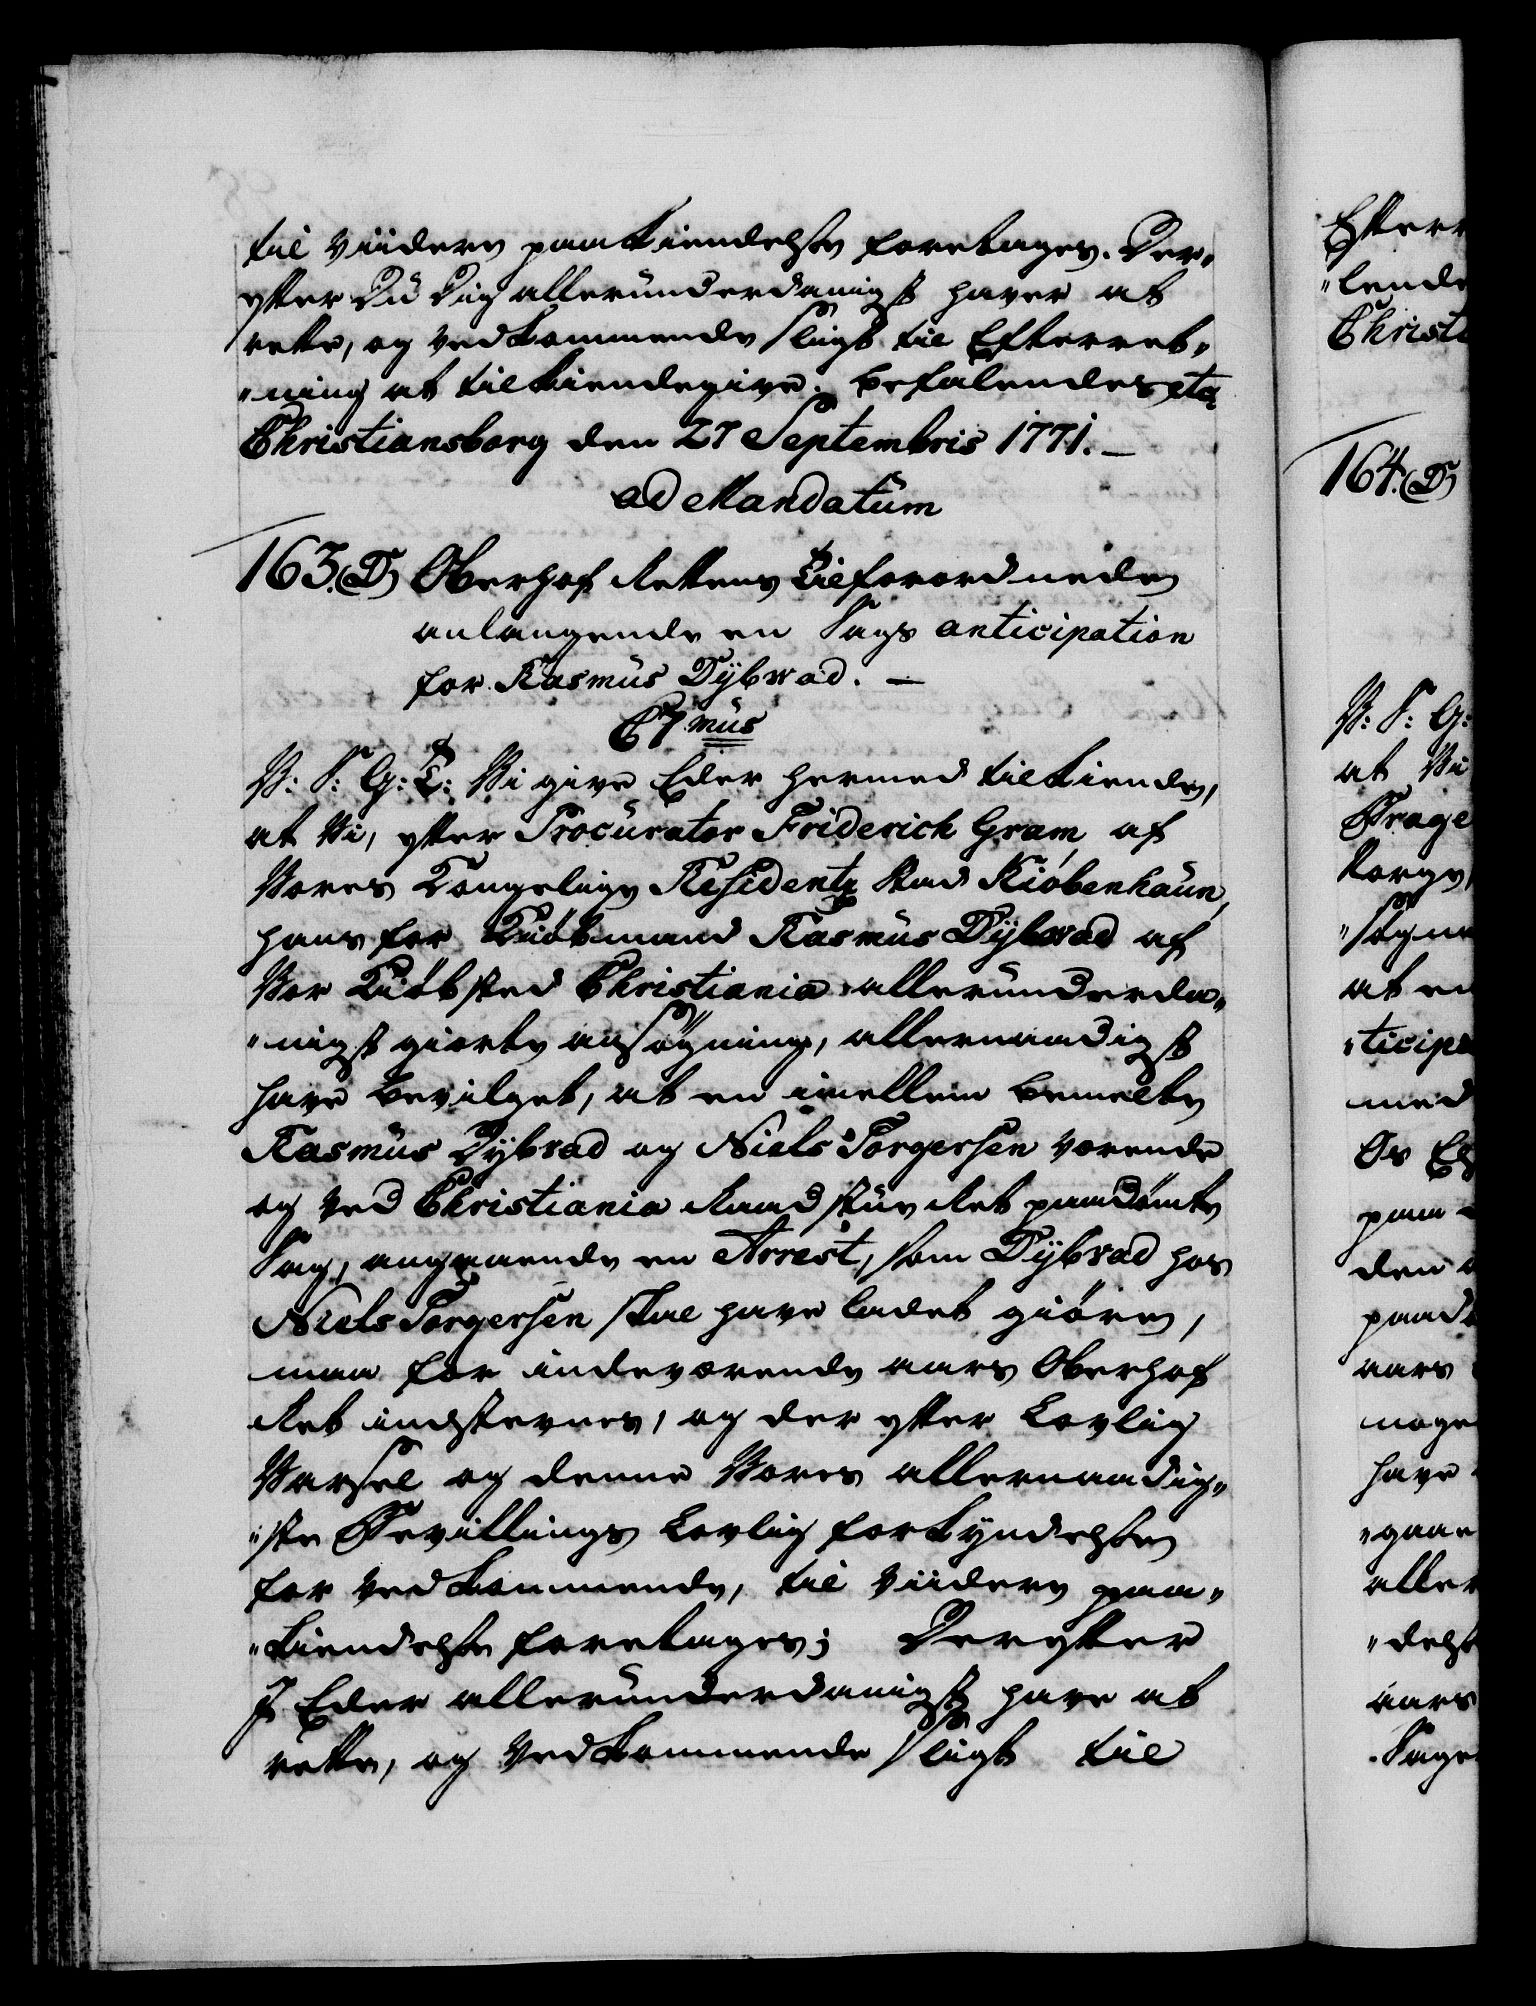 til viidere paakiendelse foretages. Der„
efter Du Dig allerunderdanigst haver at
rette, og vedkommende sligt til Efterret„
„ning at tilkiendegive. Befalendes etc
Christiansborg den 27 Septembris 1771. —
ad Mandatum
163. (D) Oberhof Rettens Tilforordnede
anlangende en Sags anticipation
for Rasmus Dybvad. —
C 7mus
V: S: G: T: Vi give Eder hermed tilkiende,
at Vi, efter Procurator Friderich Gram, af
Vores Kongelige Residentz Stad Kiøbenhaun,
hans for Kiøbmand Rasmus Dybwad af
Vor Kiøbsted Christiania allerunderda„
„nigst giorte ansøgning, allernaadigst
have bevilget, at en imellem bemelte
Rasmus Dybvad og Niels Torgersen værende
og ved Christiania Raadstue Ret paadømte
Sag, angaaende en Arrest, som Dybvad hos
Niels Torgersen skal have ladet giøre,
maa for indeværende aars Oberhof
Ret indstevnes, og der efter Lovlig
Varsel og denne Vores allernaadig„
„ste Bevillings Lovlig forkyndelse
for vedkommende, til viidere paa„
„kiendelse foretages; Derefter
I Eder allerunderdanigst have at
rette, og vedkommende sligt til
Efterr
„lende
Christi
164. (D)
V: S: G:
at Vi
Trage
Norge,
„søgn
at en
„ticipa
med
Os El
paa
den
paadø
aars
noge
have
„gaae
aller
„delse
aars
Sage